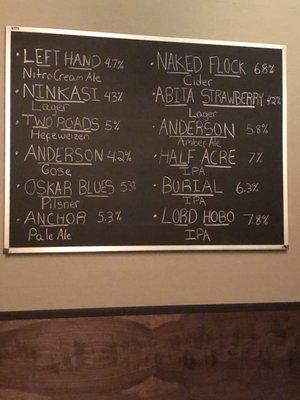 • LEFT HAND 4.7%
Nitro Cream Ale
• NINKASI 4.3%
Lager
• TWO ROADS 5%
Hefeweizen
• ANDERSON 4.2%
Gose
• OSKAR BLUES 5.3%
Pilsner
• ANCHOR 5.3%
Pale Ale
• NAKED FLOCK 6.8%
Cider
• ABITA STRAWBERRY 4.2%
Lager
• ANDERSON 5.8%
Amber Ale
• HALF ACRE 7%
IPA
• BURIAL 6.3%
IPA
• LORD HOBO 7.8%
IPA